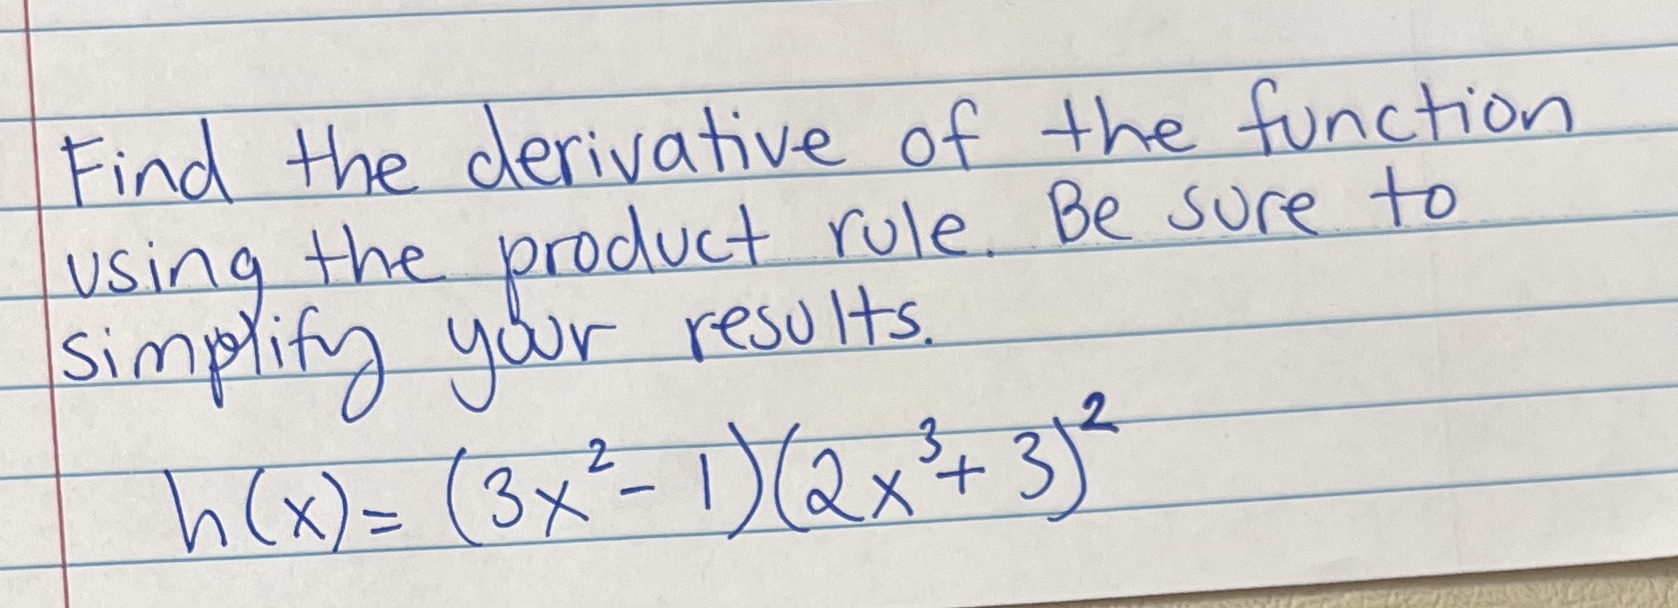 Find the derivative of the function
using the product rule. Be sure to
simplify your results.
h(x) = (3x² - 1)(2x³ + 3)²